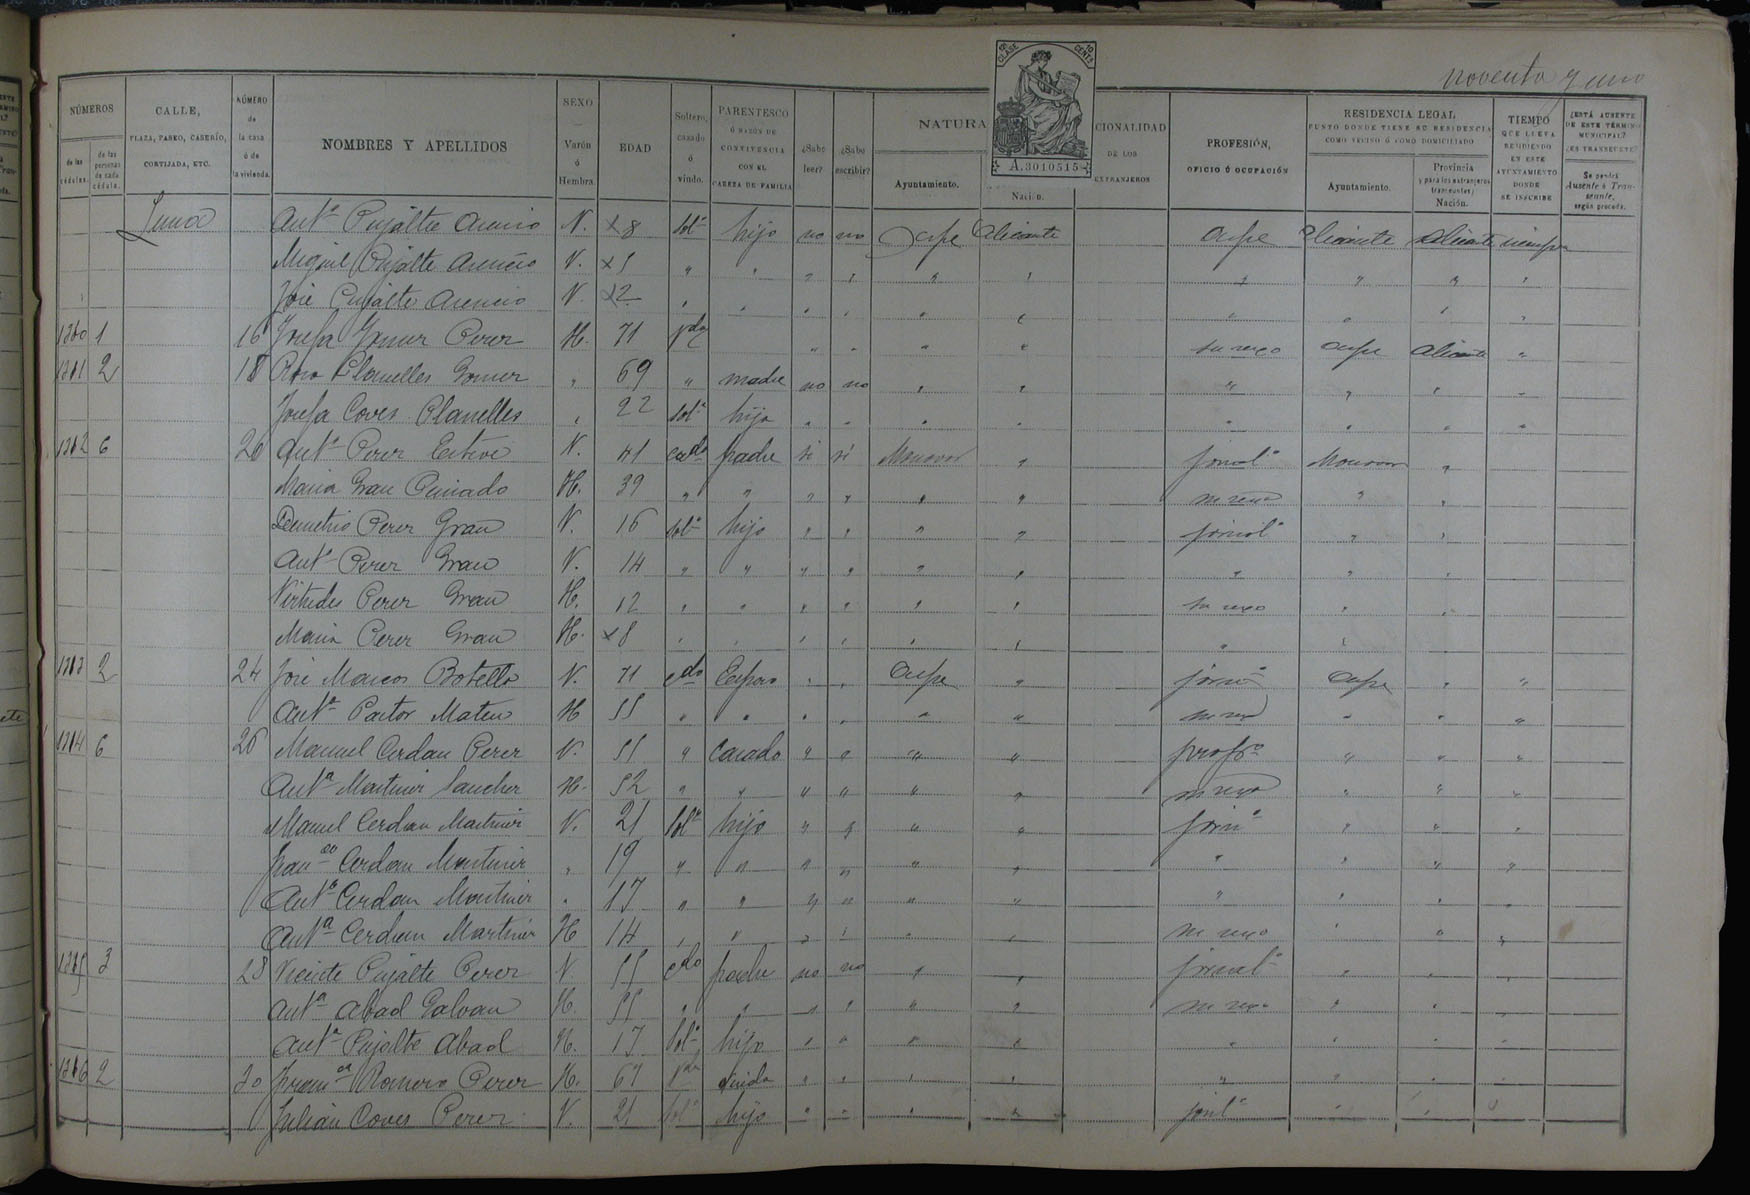 noventa y uno
12ª CLASE 10 CENTS
A.3010515
NÚMEROS
de las cédulas.
de las personas de cada cédula.
CALLE,
PLAZA, PASEO, CASERÍO,
CORTIJADA, ETC.
NÚMERO
de
la casa
ó de
la vivienda.
NOMBRES Y APELLIDOS
SEXO
Varón
ó
Hembra
EDAD
Soltero,
casado
ó
viudo.
PARENTESCO
Ó RAZÓN DE
CONVIVENCIA
CON EL
CABEZA DE FAMILIA
¿Sabe
leer?
¿Sabe
escribir?
NATURA
Ayuntamiento.
CIONALIDAD
DE LOS
EXTRANJEROS
Nación.
PROFESIÓN,
OFICIO Ó OCUPACIÓN
RESIDENCIA LEGAL
PUNTO DONDE TIENE SU RESIDENCIA
COMO VECINO Ó COMO DOMICILIADO
Ayuntamiento.
Provincia
y para los extranjeros
transeuntes
Nación.
TIEMPO
QUE LLEVA
RESIDIENDO
EN ESTE
AYUNTAMIENTO
DONDE
SE INSCRIBE
¿ESTÁ AUSENTE
DE ESTE TÉRMINO
MUNICIPAL?
¿ES TRANSEUNTE?
Se pondrá
Ausente ó Tran-
seunte,
según proceda.
Luna Antº Pujalte Asencio V. 8 solº hijo no no Aspe Alicante Aspe Alicante Alicante siempre
Miguel Pujalte Asencio V. 5 " " " " " " " " " "
José Pujalte Asencio V. 2 " " " " " " " " " "
1 16 Josefa Gomez Perez H. 71 Vda " " " " su sexo Aspe Alicante "
2 18 Rosa Planelles Gomez " 69 " madre no no " " " " " "
Josefa Coves Planelles " 22 solª hija " " " " " " " "
6 20 Antº Perez Esteve V. 41 cado padre si si Monovar " jornalº Monovar "
Maria Grau Peinado H. 39 " " " " " " su sexo " "
Demetrio Perez Grau V. 16 solº hijo " " " " jornalº " "
Antº Perez Grau V. 14 " " " " " " " " "
Virtudes Perez Grau H. 12 " " " " " " su sexo " "
Maria Perez Grau H. 8 " " " " " " " "
2 24 José Marcos Botella V. 71 cdo Esposo " " Aspe " jornº Aspe " "
Antª Pastor Mateu H 55 " " " " " " su sexo " " "
6 26 Manuel Cerdan Perez V. 55 " Casado " " " " profº " " "
Antª Martinez Sanchez H. 52 " " " " " " su sexo " " "
Manuel Cerdan Martinez V. 21 solº hijo " " " " jornº " " "
Franco Cerdan Martinez " 19 " " " " " " " " " "
Antº Cerdan Martinez " 17 " " " " " " " " " "
Antª Cerdan Martinez H 14 " " " " " " su sexo " " "
3 28 Vicente Pujalte Perez V. 55 cdo padre no no " " jornalº " " "
Antª Abad Galvan H. 55 " " " " " " su sexo " " "
Antª Pujalte Abad H. 17 solª hija " " " " " " " "
2 30 Franca Romero Perez H. 67 Vda viuda " " " " " " " "
Julián Coves Perez V. 21 solº hijo " " " " jornlº " " "